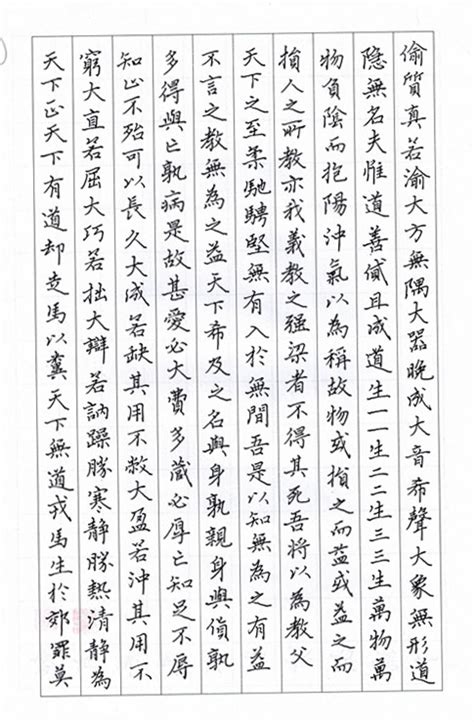 偷質真若渝大方無隅大器晚成大音希聲大象無形道
隱無名夫惟道善貸且成道生一一生二二生三三生萬物萬
物負陰而抱陽沖氣以為稱故物或損之而益或益之而
損人之所教亦我義教之强梁者不得其死吾將以為教父
天下之至柔馳騁堅無有入於無間吾是以知無為之有益
不言之教無為之益天下希及之名與身孰親身與貨孰
多得與亡孰病是故甚愛必大費多藏必厚亡知足不辱
知止不殆可以長久大成若缺其用不敝大盈若沖其用不
窮大直若屈大巧若拙大辯若訥躁勝寒靜勝熱清靜為
天下正天下有道却走馬以糞天下無道戎馬生於郊罪莫